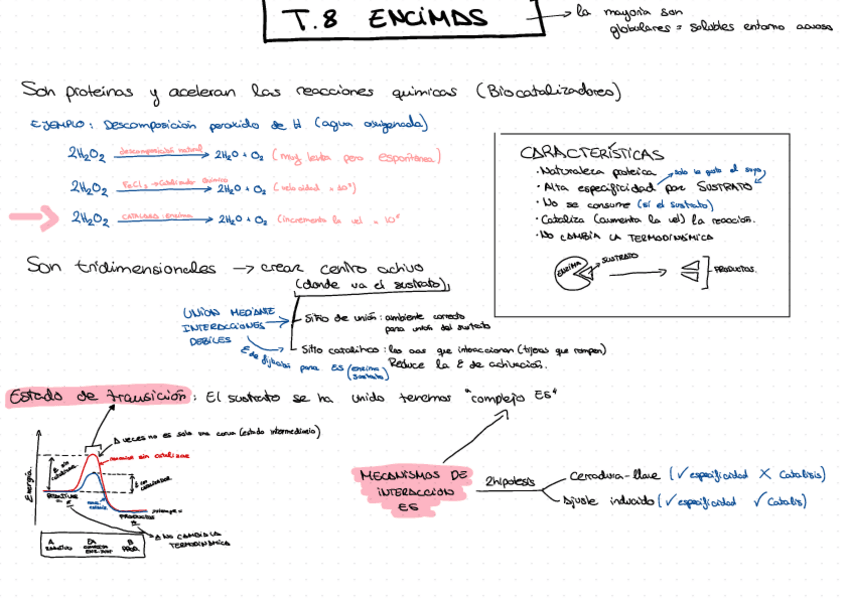 T.8 ENCIMAS
→ la mayoría son
globulares = solubles entorno acuoso
Son proteinas y aceleran las reacciones quimicas (Biocatalizadores)
EJEMPLO: Descomposicion peroxido de H (agua oxigenada)
2H2O2 descomposición natural → 2H2O + O2 (muy lenta pero espontánea)
2H2O2 FeCl3 → Catalizador Químico → 2H2O + O2 (velocidad
2H2O2 CATALASA: enzima → 2H2O + O2 (incrementa la vel
CARACTERÍSTICAS
· Naturaleza proteica
solo le gusta el suyo
· Alta especificidad por SUSTRATO
· No se consume (si el sustrato)
· Cataliza (aumenta la vel) la reacción.
· No CAMBIA LA TERMODINÁMICA
ENZIMA
SUSTRATO
PRODUCTOS.
Son tridimensionales → crear centro activo
(donde va el sustrato),
UNION MEDIANTE
INTERACCIONES
DEBILES
Sitio de unión: ambiente correcto
para unión del sustrato
Sitio catalitico: los aas que interaccionan (tijeras que rompen)
Reduce la E de activación.
para ES (enzima
sustrato)
Estado de transición: El sustrato se ha unido tenemos "complejo ES"
A veces no es solo una curva (estado intermedio)
Energía
PRODUCTOS
NO CAMBIA LA
TERMODINÁMICA
A
EA
B
MECANISMOS DE
INTERACCION
ES
2hipotesis
Cerradura-llave (✓especificidad X Catalisis)
Ajuste inducido (✓especificidad ✓Catalis)